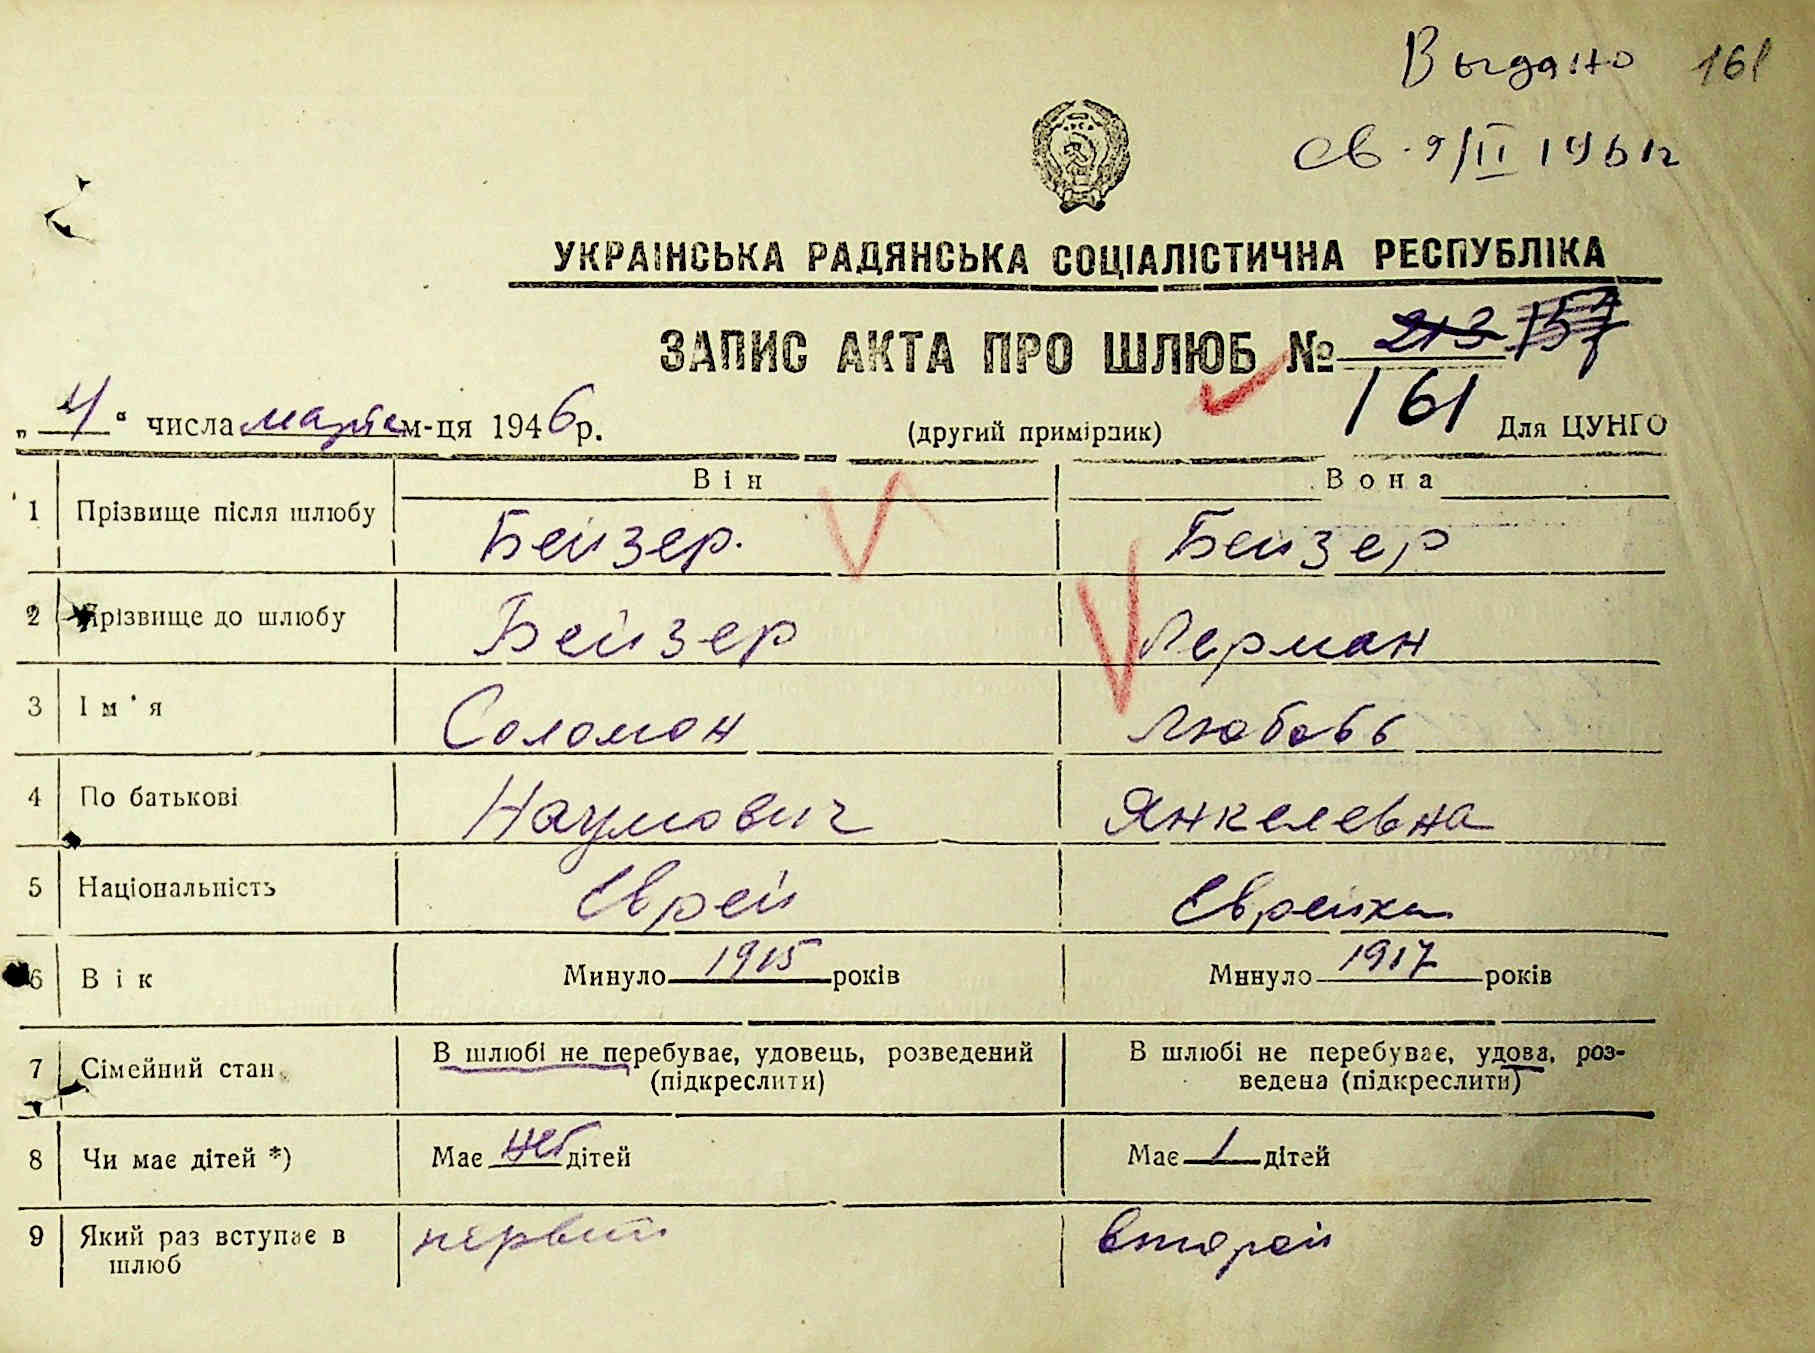 Выдано 161
св. 9/II 1961г
УКРАЇНСЬКА РАДЯНСЬКА СОЦІАЛІСТИЧНА РЕСПУБЛІКА
ЗАПИС АКТА ПРО ШЛЮБ № 213 157
„4“ числа марта м-ця 1946 р. (другий примірник) 161 Для ЦУНГО
Він Вона
1 Прізвище після шлюбу Бейзер. Бейзер
2 Прізвище до шлюбу Бейзер Лерман
3 Ім'я Соломон Любовь
4 По батькові Наумович Янкелевна
5 Національність Еврей Еврейка
6 Вік Минуло 1915 років Минуло 1917 років
7 Сімейний стан В шлюбі не перебуває, удовець, розведений В шлюбі не перебуває, удова, роз-
(підкреслити) ведена (підкреслити)
8 Чи має дітей *) Має нет дітей Має 1 дітей
9 Який раз вступає в первый второй
шлюб